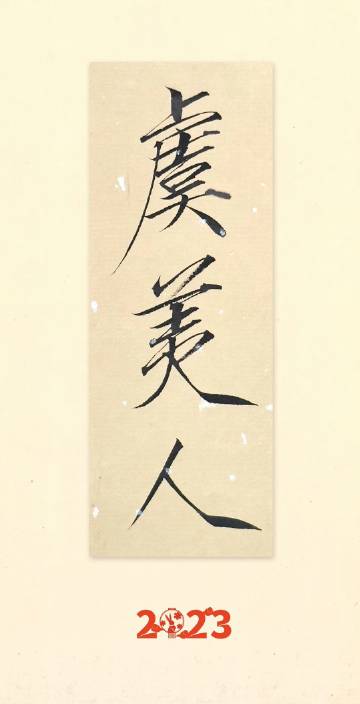 虞美人
2023